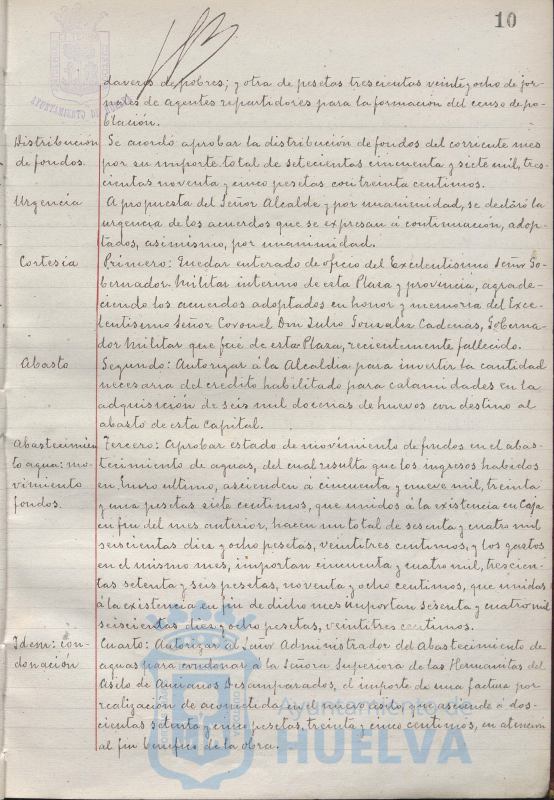 10
AYUNTAMIENTO DE
daveres de pobres; y otra de pesetas trescientas veinte y ocho de jor-
nales de agentes repartidores para la formación del censo de po-
blación.
Distribución de fondos.
Se acordó aprobar la distribución de fondos del corriente mes
por su importe total de setecientas cincuenta y siete mil, tres-
cientas noventa y cinco pesetas con treinta centimos.
Urgencia
A propuesta del Señor Alcalde y por unanimidad, se declaró la
urgencia de los acuerdos que se expresan á continuación, adop-
tados, asimismo, por unanimidad.
Cortesia
Primero: Quedar enterado de oficio del Excelentisimo Señor Go-
bernador Militar interino de esta Plaza y provincia, agrade-
ciendo los acuerdos adoptados en honor y memoria del Exce-
lentisimo Señor Coronel Don Julio Gonzalez Cadenas, Goberna-
dor Militar que fué de esta Plaza, recientemente fallecido.
Abasto
Segundo: Autorizar á la Alcaldia para invertir la cantidad
necesaria del credito habilitado para calamidades en la
adquisición de seis mil docenas de huevos con destino al
abasto de esta Capital.
Abastecimien
to agua: mo-
vimiento
fondos.
Tercero: Aprobar estado de movimiento de fondos en el abas-
tecimiento de aguas, del cual resulta que los ingresos habidos
en Enero ultimo, ascienden á cincuenta y nueve mil, treinta
y una pesetas siete centimos, que unidos á la existencia en Caja
en fin del mes anterior, hacen un total de sesenta y cuatro mil
seiscientas diez y ocho pesetas, veintitres centimos, y los gastos
en el mismo mes, importan cincuenta y cuatro mil, trescien-
tas setenta y seis pesetas, noventa y ocho centimos, que unidas
á la existencia en fin de dicho mes importan sesenta y cuatro mil
seiscientas diez y ocho pesetas, veintitres centimos.
Idem: con-
donación
Cuarto: Autorizar al Señor Administrador del Abastecimiento de
aguas para condonar á la Señora Superiora de las Hermanitas del
Asilo de Ancianos Desamparados, el importe de una factura por
realización de acometida en el nuevo asilo, que asciende á dos-
cientas setenta y cinco pesetas, treinta y cinco centimos, en atención
al fin benefico de la obra.
Ayuntamiento de
HUELVA